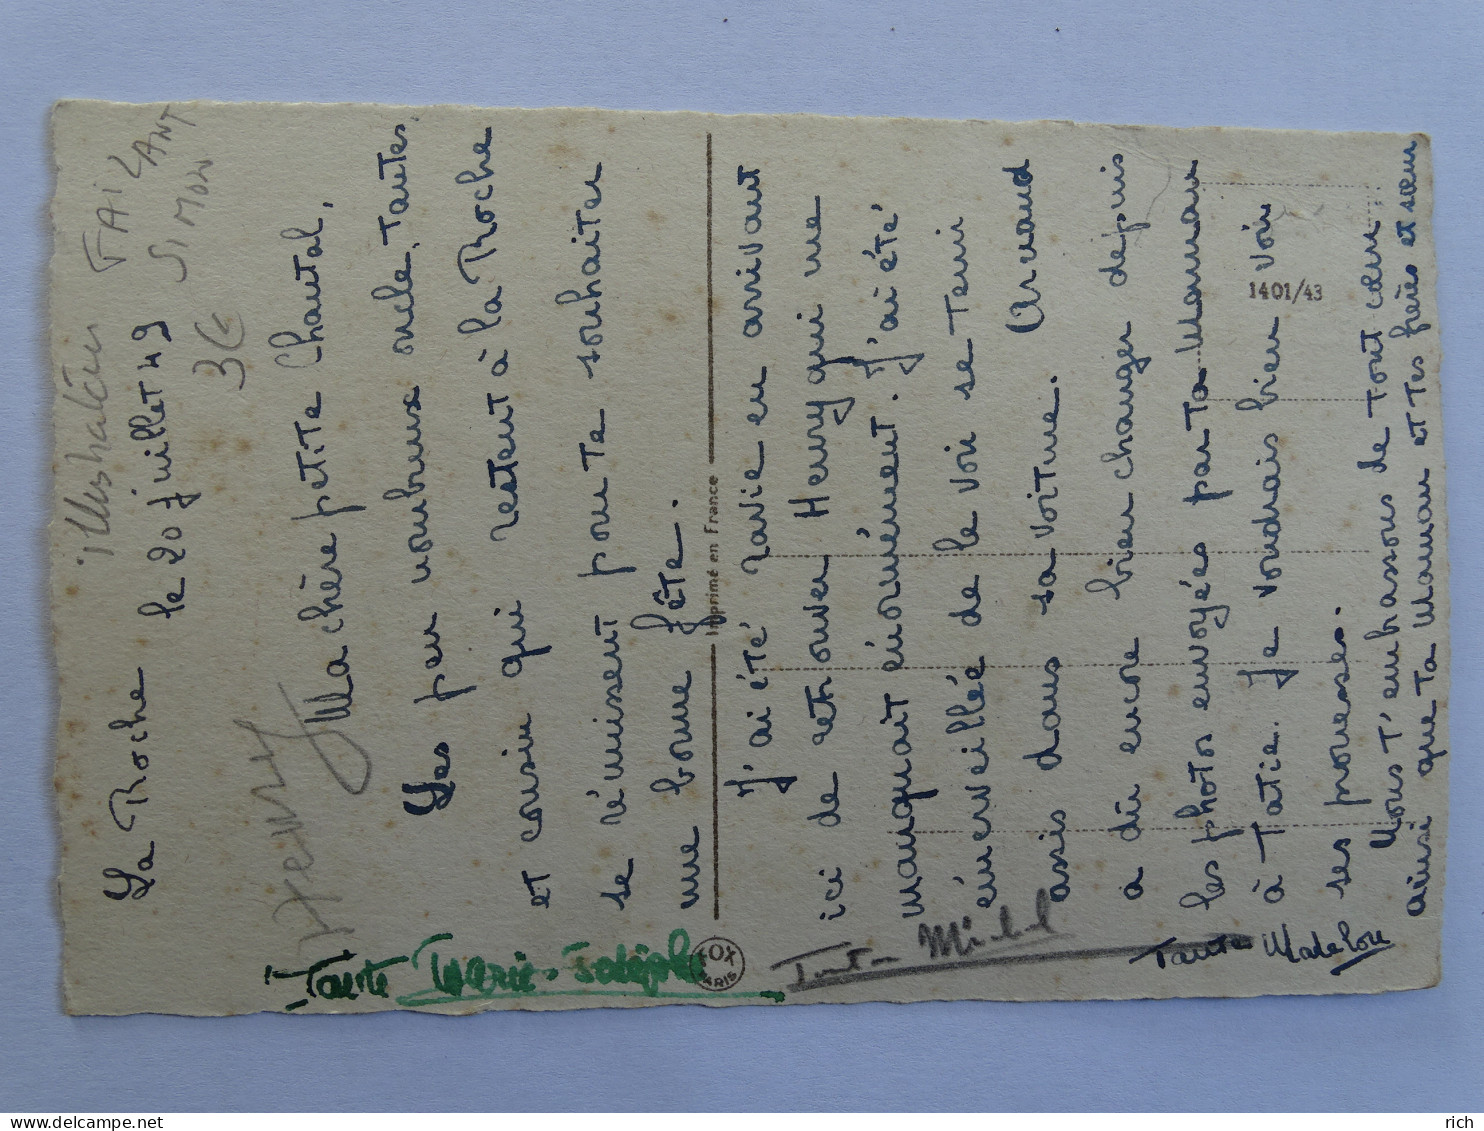 illustrateur FAIZANT
SIMON
3€
La Roche
le 20 juillet 49
Henry
Ma chère petite Chantal,
Les peu nombreux oncle, tantes
et cousin qui restent à la Roche
se réunissent pour te souhaiter
une bonne fête.
Imprimé en France
J'ai été ravie en arrivant
ici de retrouver Henry qui me
manquait énormément. J'ai été
émerveillée de le voir se tenir
assis dans sa voiture. Arnaud
a dû encore bien changer depuis
les photos envoyées par ta Maman
à Tatie. Je voudrais bien voir
ses prouesses.
Nous t'embrassons de tout cœur
ainsi que ta Maman et tes frères et sœur
1401/43
Tante Marie-Josèphe
FOX
PARIS
Tonton Michel
Tante Madelou
rich